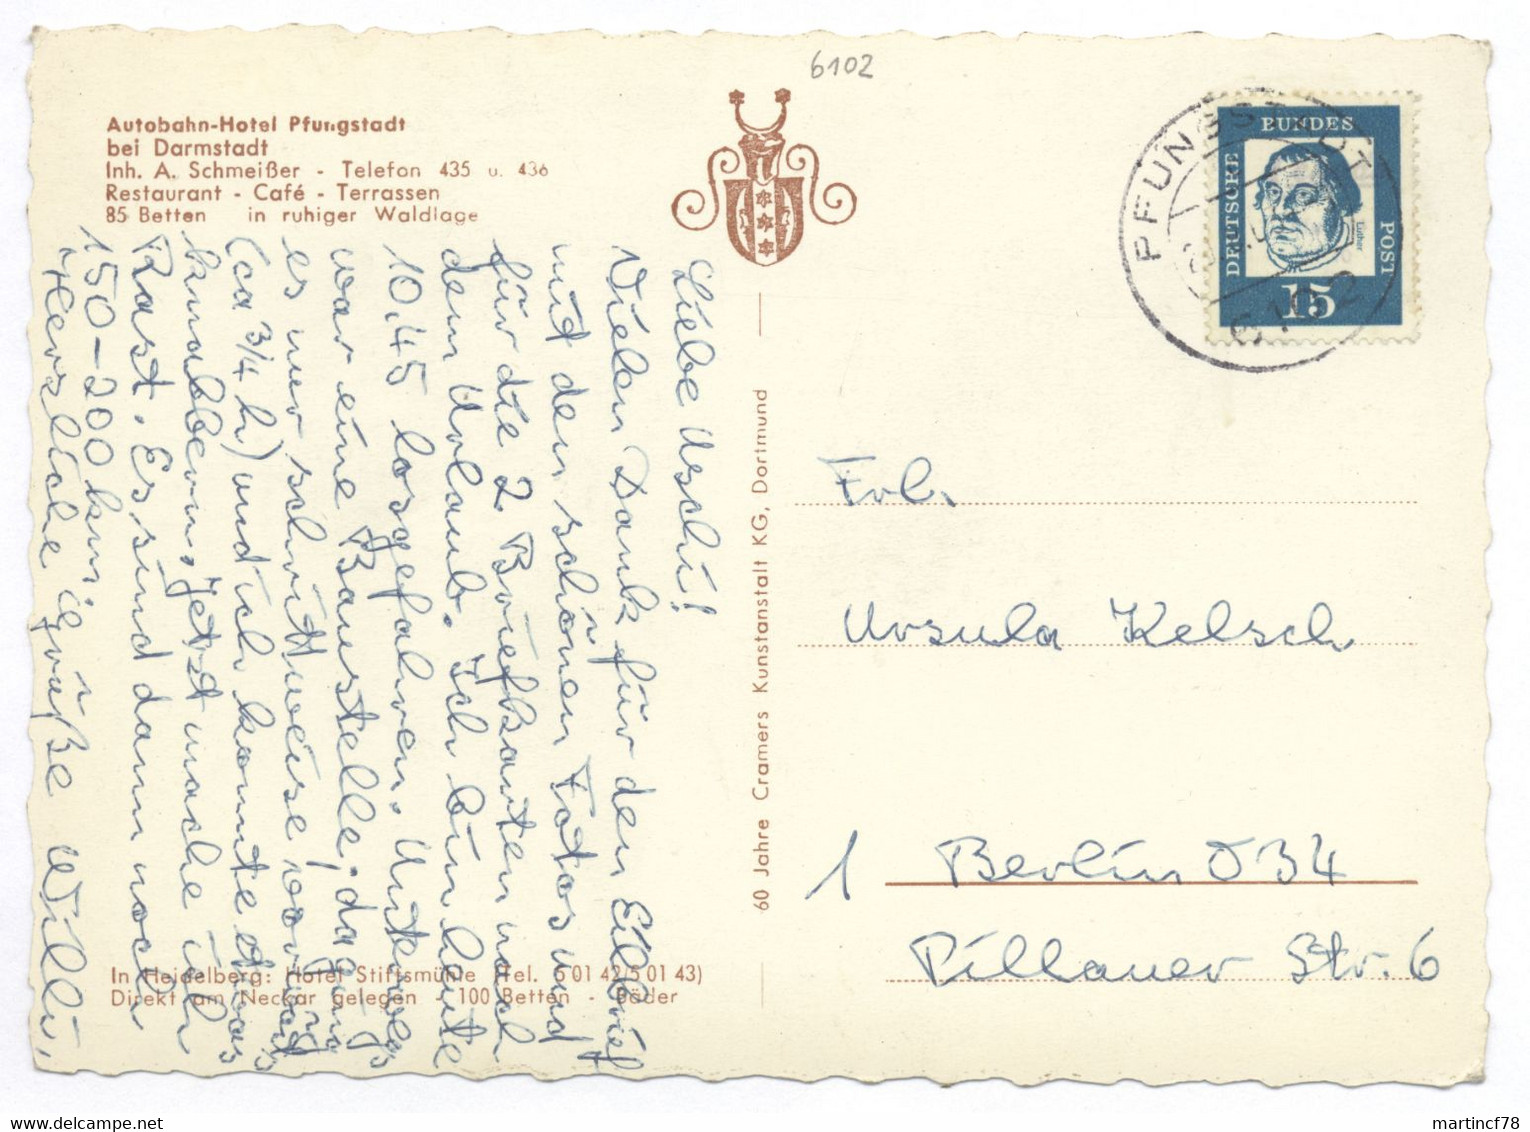 6102
Autobahn-Hotel Pfungstadt
bei Darmstadt
Inh. A. Schmeißer - Telefon 435 u. 436
Restaurant - Café - Terrassen
85 Betten in ruhiger Waldlage
Liebe Uschi!
Vielen Dank für den Eilbrief
mit den schönen Fotos und
für die 2 Briefkarten nach
dem Urlaub. Ich bin heute
10.45 losgefahren. Unterwegs
war eine Baustelle, da ging
es nur schrittweise vorwärts
(ca 3/4 h) und ich konnte etwas
knabbern. Jetzt mache ich
Rast. Es sind dann noch
150-200 km.
Herzliche Grüße Willi.
In Heidelberg: Hotel Stiftsmühle (Tel. 5 01 42/5 01 43)
Direkt am Neckar gelegen - 100 Betten - Bäder
60 Jahre Cramers Kunstanstalt KG, Dortmund
PFUNGSTADT
6102
DEUTSCHE
BUNDES
POST
Luther
15
Frl.
Ursula Kelsch
1 Berlin O 34
Pillauer Str. 6
martincf78